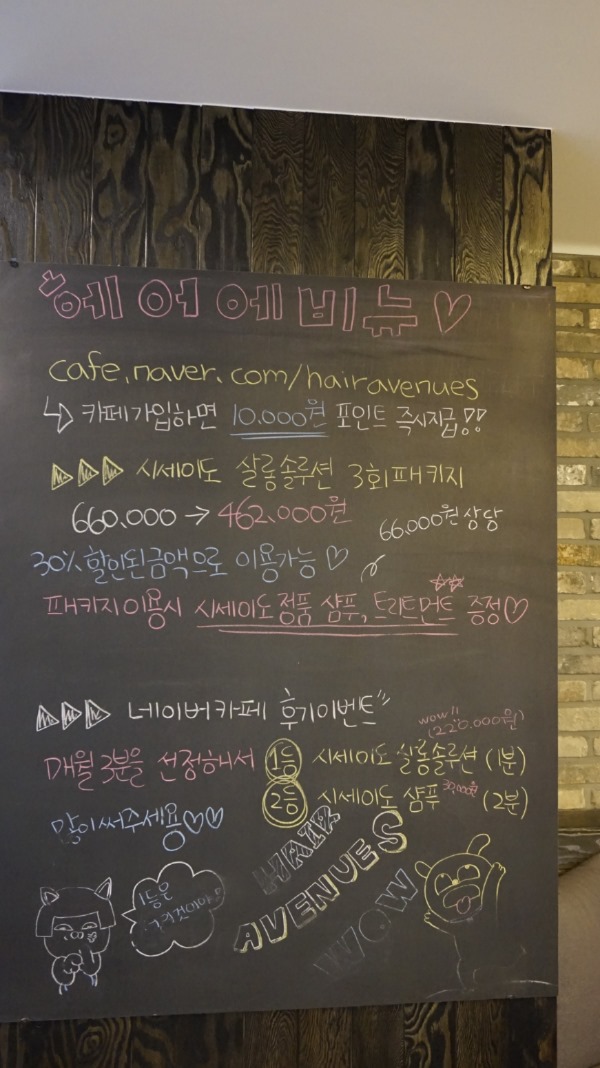 헤어에비뉴♡
cafe.naver.com/hairavenues
카페가입하면 10.000원 포인트 즉시지급!!
시세이도 살롱솔루션 3회패키지
660.000 → 462.000원
66.000원 상당
30% 할인된 금액으로 이용가능 ♡
패키지이용시 시세이도정품 샴푸, 트리트먼트 증정♡
네이버카페 후기이벤트"
wow!!
(220.000원)
매월 3분을 선정해서 1등 시세이도 살롱솔루션 (1분)
2등 시세이도 샴푸 30,000원 (2분)
많이써주세용♡♡
1등은
HAIR
AVENUES
WOW